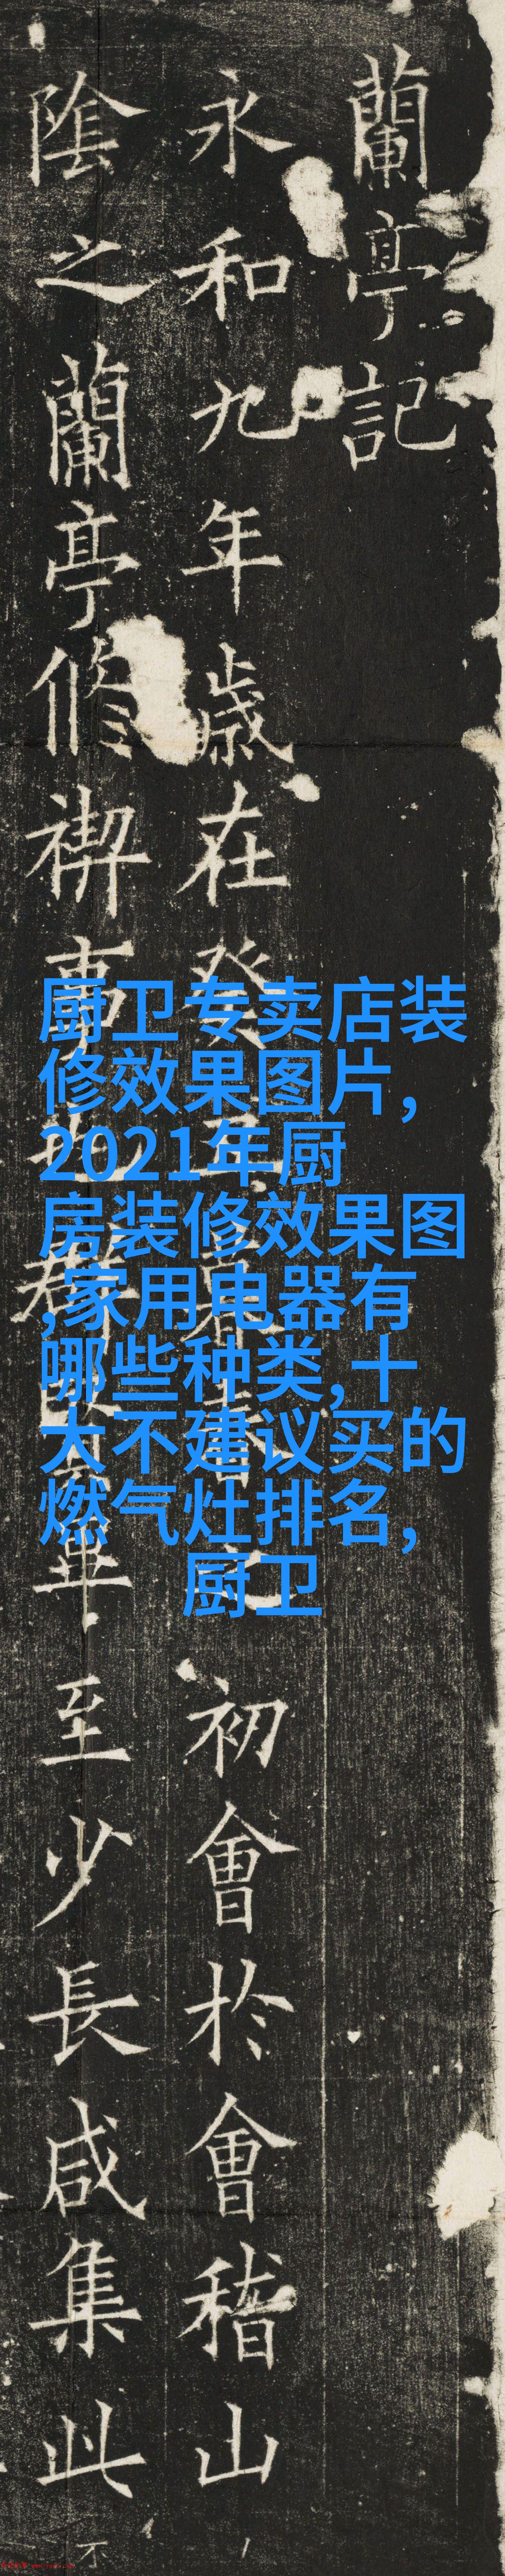 蘭亭記
永和九年歲在癸丑暮春之初會於會稽山
陰之蘭亭修禊事也群賢畢至少長咸集此
不
厨卫专卖店装
修效果图片,
2021年厨
房装修效果图
,家用电器有
哪些种类,十
大不建议买的
燃气灶排名,
厨卫